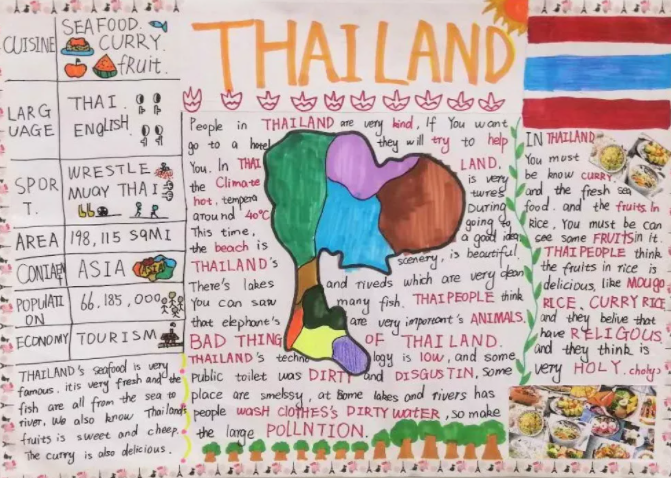 THAILAND
CUISINE
SEAFOOD.
CURRY.
fRUIT.
LARG
UAGE
THAI.
ENGLISH
SPOR
T.
WRESTLE
MUAY THAI
AREA
198,115 SQMI
CONTAEN
ASIA
ASIA
POPULATI
ON
66,185,000
ECONOMY
TOURISM
THAILAND's seafood is very
famous. it is very fresh and the
fish are all from the sea to
river, We also know Thailands
fruits is sweet and cheep.
The curry is also delicious.
People in THAILAND are very kind, If You want
go to a hotel they will try to help
You. In THAI LAND.
the Climate is very
hot, tempera tures
around 40°C During
This time, going to
the beach is a good idea
THAILAND's scenery, is beautiful.
There's lakes and riveds which are very clean
You can saw many fish. THAIPEOPLE think
that elephone's are very imporeant's ANIMALS
BAD THING OF THAILAND.
THAILAND's techno logy is low, and some
Public toilet was DIRTY and DISGUSTIN, some
place are smelssy, at some lakes and rivers has
people WASH CLOTHES'S DIRTY WATER, so make
the large POLLNTION.
IN THAILAND
You must
be know CURRY,
and the fresh sea
food. and the fruits. In
Rice, You must be can
see some FRUITS in it.
THAIPEOPLE think
the fruits in rice is
delicious, like Mougo
RICE, CURRY RICE
and they belive that
have RELIGOUS
and they think is
very HOLY. choly>